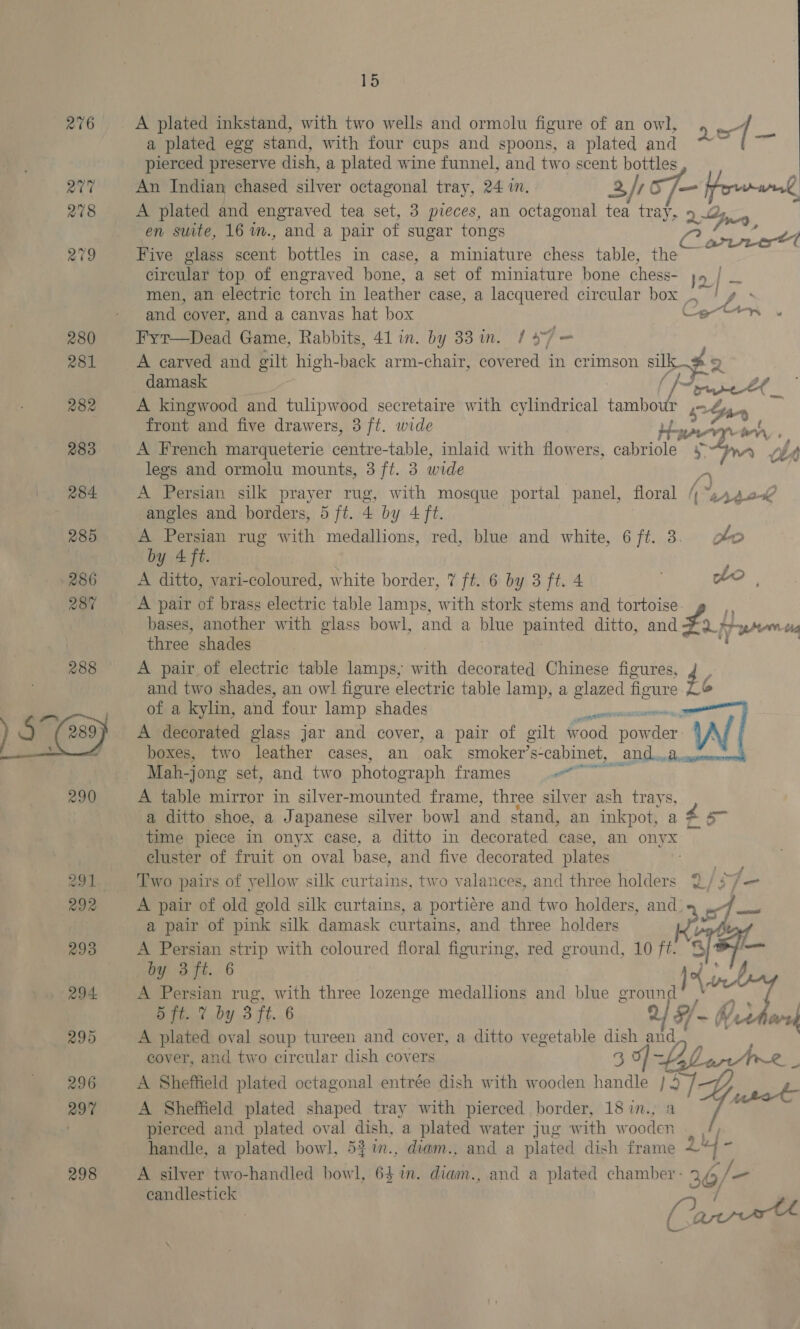 15
276 A plated inkstand, with two wells and ormolu figure of an owl,
a plated egg stand, with four cups and spoons, a plated and
pierced preserve dish, a plated wine funnel, and two scent bottles
277 An Indian chased silver octagonal tray, 24 in.
278 A plated and engraved tea set, 3 pieces, an octagonal tea tray,
en suite, 16 in., and a pair of sugar tongs
279 Five glass scent bottles in case, a miniature chess table, the
circular top of engraved bone, a set of miniature bone chess-
men, an electric torch in leather case, a lacquered circular box
and cover, and a canvas hat box
280 FYT—Dead Game, Rabbits, 41 in. by 33 in.
281 A carved and gilt high-back arm-chair, covered in crimson silk
damask
282 A kingwood and tulipwood secretaire with cylindrical tambour
front and five drawers, 3 ft. wide
283 A French marqueterie centre-table, inlaid with flowers, cabriole
legs and ormolu mounts, 3 ft. 3 wide
284 A Persian silk prayer rug, with mosque portal panel, floral
angles and borders, 5 ft. 4 by 4 ft.
285 A Persian rug with medallions, red, blue and white, 6 ft. 3 do
by 4 ft.
286 A ditto, vari-coloured, white border, 7 ft. 6 by 3 ft. 4 do
287 A pair of brass electric table lamps, with stork stems and tortoise
bases, another with glass bowl, and a blue painted ditto, and £2
three shades
288 A pair of electric table lamps, with decorated Chinese figures,
and two shades, an owl figure electric table lamp, a glazed figure £6
of a kylin, and four lamp shades
289 A decorated glass jar and cover, a pair of gilt wood powder
boxes, two leather cases, an oak smoker's-cabinet, and a
Mah-jong set, and two photograph frames
290 A table mirror in silver-mounted frame, three silver ash trays,
a ditto shoe, a Japanese silver bowl and stand, an inkpot, a £5
time piece in onyx case, a ditto in decorated case, an onyx
cluster of fruit on oval base, and five decorated plates
291 Two pairs of yellow silk curtains, two valances, and three holders
292 A pair of old gold silk curtains, a portière and two holders, and
a pair of pink silk damask curtains, and three holders
293 A Persian strip with coloured floral figuring, red ground, 10 ft.
by 3 ft. 6
294 A Persian rug, with three lozenge medallions and blue ground
5 ft. 7 by 3 ft. 6
295 A plated oval soup tureen and cover, a ditto vegetable dish and
cover, and two circular dish covers
296 A Sheffield plated octagonal entrée dish with wooden handle
297 A Sheffield plated shaped tray with pierced border, 18 in., a
pierced and plated oval dish, a plated water jug with wooden
handle, a plated bowl, 5¾ in., diam., and a plated dish frame
298 A silver two-handled bowl, 6½ in. diam., and a plated chamber- 36/–
candlestick